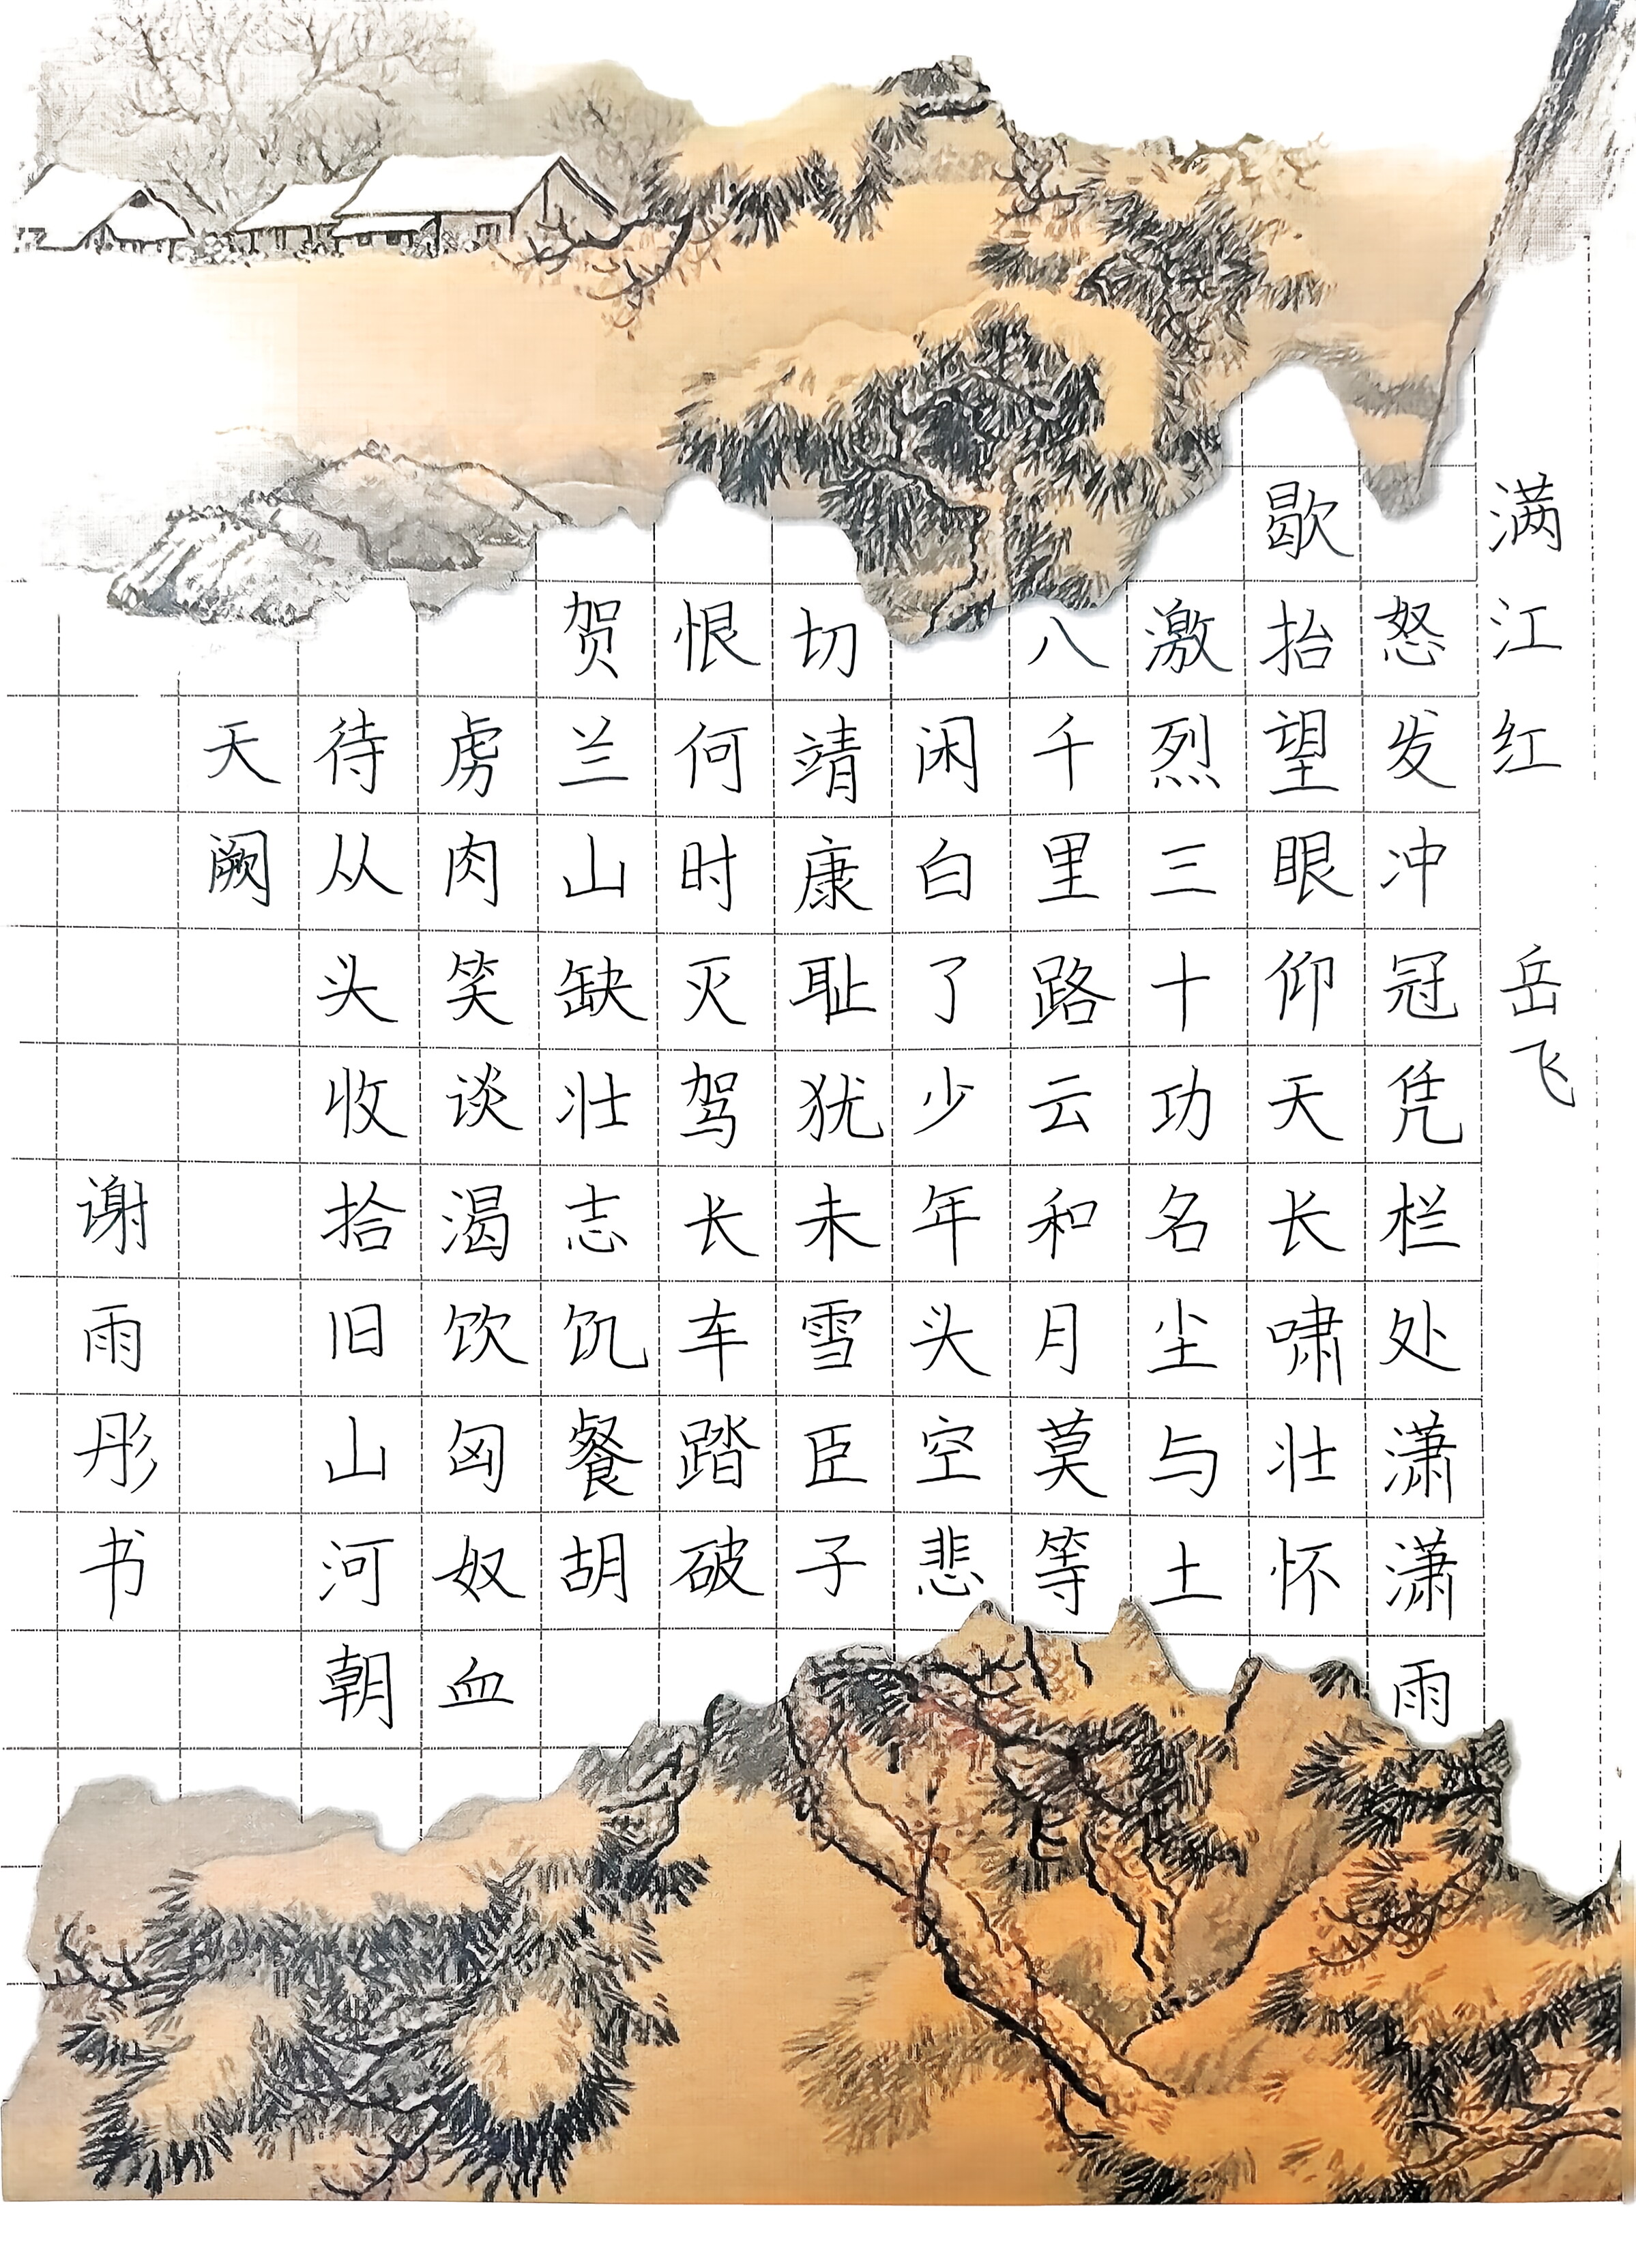 满江红 岳飞
怒发冲冠凭栏处潇潇雨
歇抬望眼仰天长啸壮怀
激烈三十功名尘与土
八千里路云和月莫等
闲白了少年头空悲
切靖康耻犹未雪臣子
恨何时灭驾长车踏破
贺兰山缺壮志饥餐胡
虏肉笑谈渴饮匈奴血
待从头收拾旧山河朝
天阙
谢雨彤书